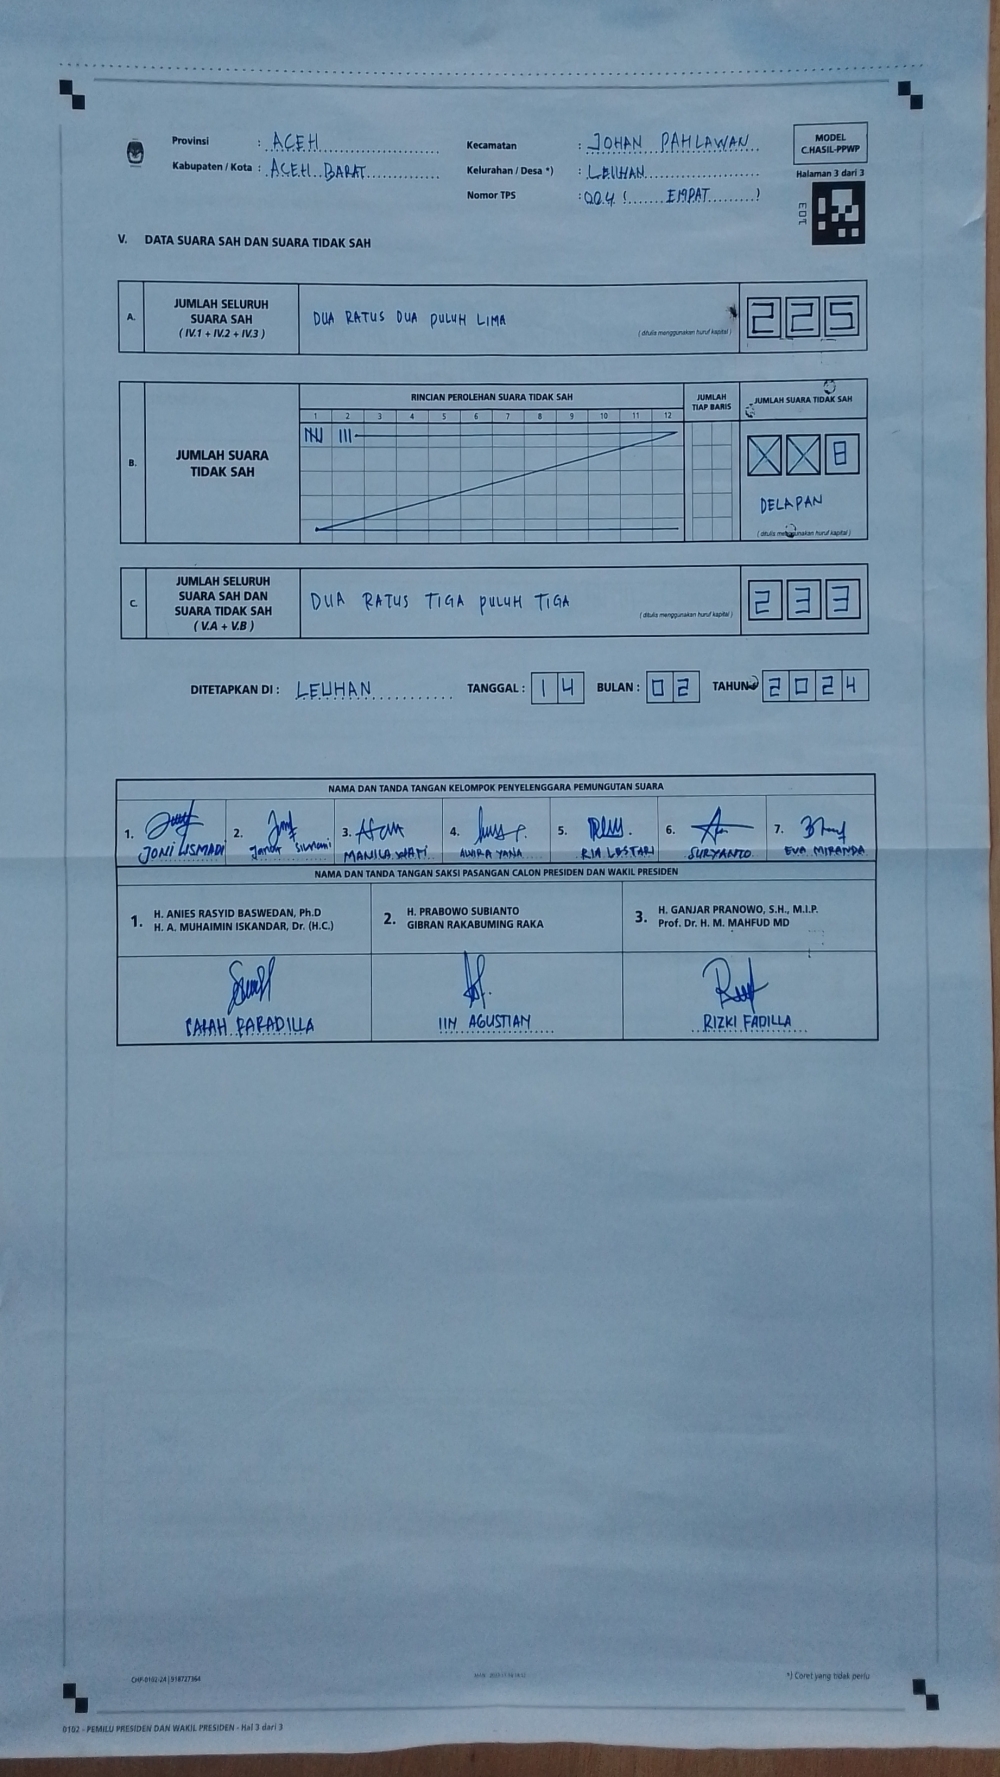 Provinsi : ACEH
Kabupaten / Kota : ACEH BARAT
Kecamatan : JOHAN PAHLAWAN
Kelurahan / Desa *) : LEUHAN
Nomor TPS : 004 ( EMPAT )
MODEL
C.HASIL-PPWP
Halaman 3 dari 3
V. DATA SUARA SAH DAN SUARA TIDAK SAH
A. JUMLAH SELURUH SUARA SAH ( IV.1 + IV.2 + IV.3 )
DUA RATUS DUA PULUH LIMA
( ditulis menggunakan huruf kapital )
225
B. JUMLAH SUARA TIDAK SAH
RINCIAN PEROLEHAN SUARA TIDAK SAH
1 2 3 4 5 6 7 8 9 10 11 12
JUMLAH TIAP BARIS
JUMLAH SUARA TIDAK SAH
X X 8
DELAPAN
( ditulis menggunakan huruf kapital )
C. JUMLAH SELURUH SUARA SAH DAN SUARA TIDAK SAH ( V.A + V.B )
DUA RATUS TIGA PULUH TIGA
( ditulis menggunakan huruf kapital )
233
DITETAPKAN DI : LEUHAN TANGGAL : 14 BULAN : 02 TAHUN 2024
NAMA DAN TANDA TANGAN KELOMPOK PENYELENGGARA PEMUNGUTAN SUARA
1. 2. 3. 4. 5. 6. 7.
JONI LISMADI MANILA WATI RIA LESTARI SURYANTO EVA MIRANDA
NAMA DAN TANDA TANGAN SAKSI PASANGAN CALON PRESIDEN DAN WAKIL PRESIDEN
1. H. ANIES RASYID BASWEDAN, Ph.D
H. A. MUHAIMIN ISKANDAR, Dr. (H.C.)
2. H. PRABOWO SUBIANTO
GIBRAN RAKABUMING RAKA
3. H. GANJAR PRANOWO, S.H., M.I.P.
Prof. Dr. H. M. MAHFUD MD
IIN AGUSTIAN
RIZKI FADILLA
CHP-0102-24 | 918727364
*) Coret yang tidak perlu
0102 - PEMILU PRESIDEN DAN WAKIL PRESIDEN - Hal 3 dari 3